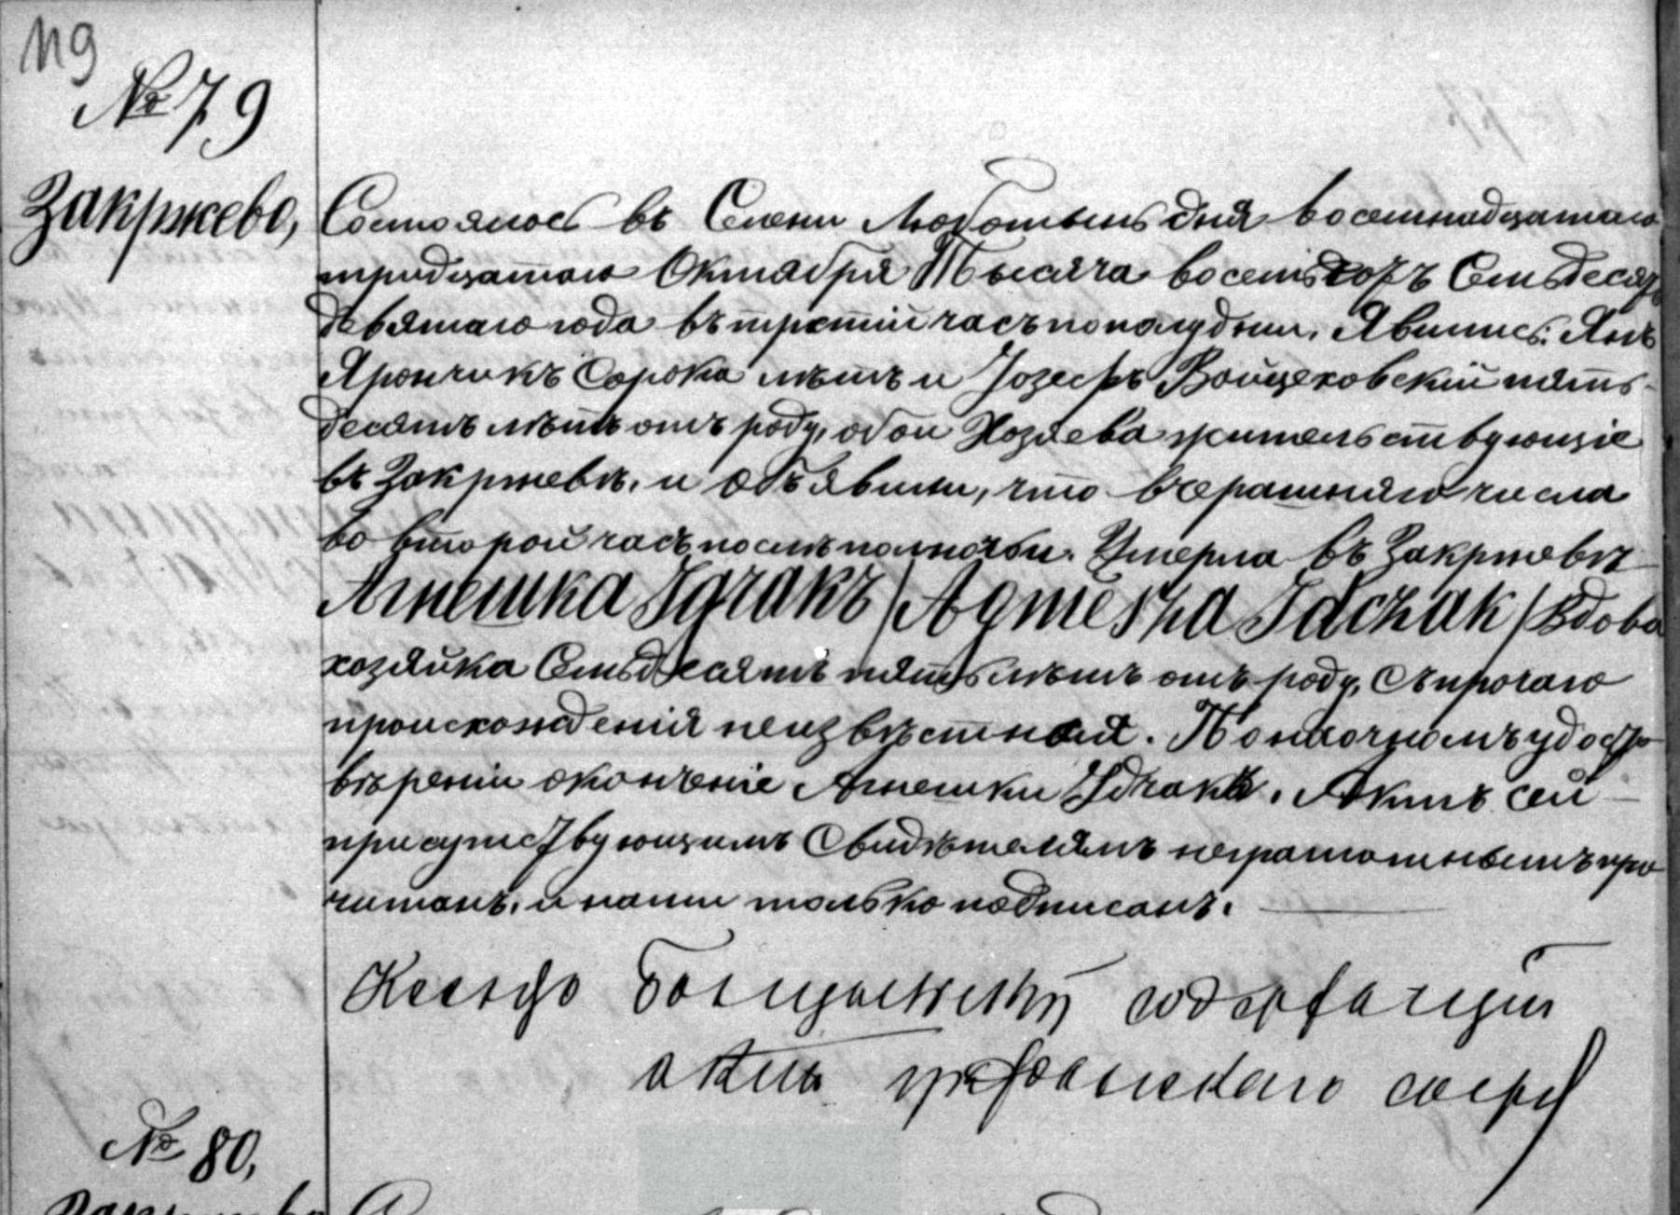 119
№ 79
Закржево,
Состоялось въ Селѣ Люботынь дня восемнадцатаго
тридцатаго Октября Тысяча восемьсотъ Семьдесят
девятаго года въ третій часъ пополудни. Явились: Янъ
Ярончикъ Сорока лѣтъ и Іозефъ Войцеховскій пять-
десятъ лѣтъ отъ роду, обои Хозяева жительствующіе
въ Закржевѣ, и объявили, что вчерашняго числа
во второй часъ послѣ полночи. Умерла въ Закржевѣ
Агнешка Гдчакъ / Agnieszka Gdczak / Вдова
хозяйка Семьдесятъ пять лѣтъ отъ роду, съ прочаго
происхожденія неизвѣстная. По наочномъ удосто
вѣреніи окончѣніе Агнешки Гдчакъ. Актъ сей
присутствующимъ Свидѣтелямъ неграмотнымъ про
читанъ, и нами только подписанъ.
Ксендз содержащій
акты гражданскаго состр
№ 80,